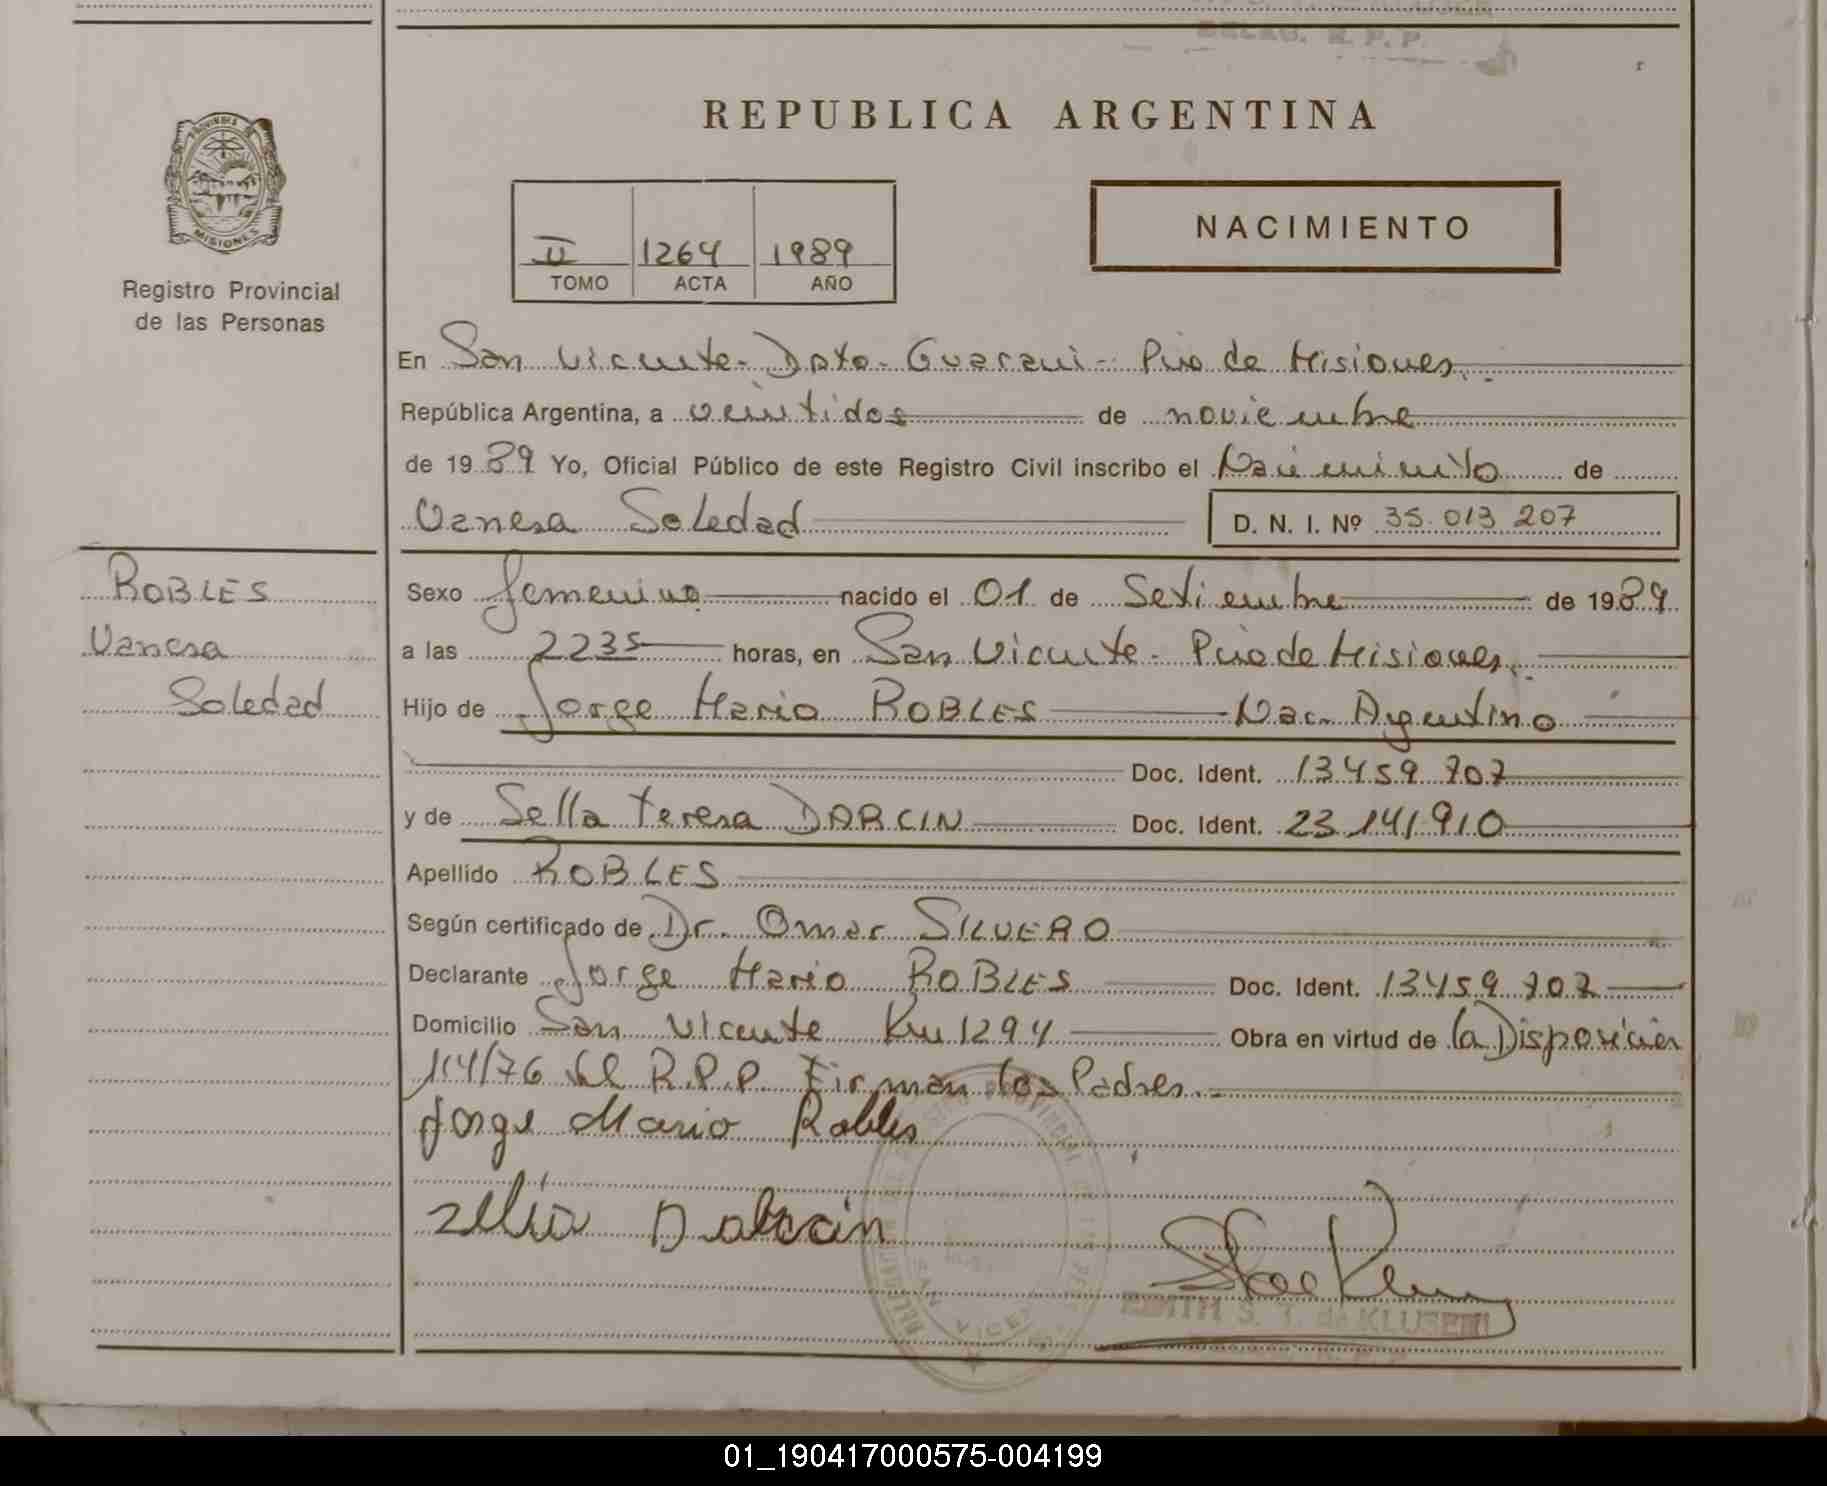 BELAG. R. P. P.
REPUBLICA ARGENTINA
PROVINCIA DE
MISIONES
Registro Provincial
de las Personas
II 1264 1989
TOMO ACTA AÑO
NACIMIENTO
En San Vicente - Dpto - Guaraní - Pcia de Misiones.
República Argentina, a veintidos de noviembre
de 1989 Yo, Oficial Público de este Registro Civil inscribo el Nacimiento de
Vanesa Soledad D. N. I. Nº 35.013 207
ROBLES
Vanesa
Soledad
Sexo femenino nacido el 01 de Setiembre de 1989
a las 2235 horas, en San Vicente - Pcia de Misiones.
Hijo de Jorge Mario ROBLES Nac. Argentino
Doc. Ident. 13459 707
y de Sella Teresa DARCIN Doc. Ident. 23 141 910
Apellido ROBLES
Según certificado de Dr. Omar SILVERO
Declarante Jorge Mario ROBLES Doc. Ident. 13459 707
Domicilio San Vicente Km 1294 Obra en virtud de la Disposición
114/76 del R.P.P. Firman los Padres.
Jorge Mario Robles
Zellia Dalccin
EDITH S. T. de KLUSENER
01_190417000575-004199